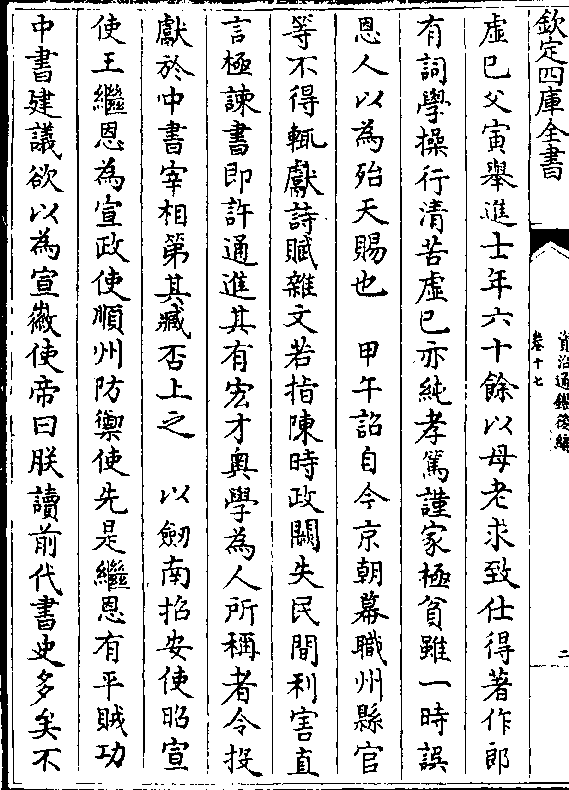 欽定四庫全書
資治通鑑後編
卷十七
二
虛已父寅舉進士年六十餘以母老求致仕得著作郎
有詞學操行清苦虛已亦純孝篤謹家極貧雖一時誤
恩人以為殆天賜也　甲午詔自今京朝幕職州縣官
等不得輒獻詩賦雜文若指陳時政闕失民間利害直
言極諫書即許通進其有宏才奥學為人所稱者令投
獻於中書宰相第其臧否上之　以劒南招安使昭宣
使王繼恩為宣政使順州防禦使先是繼恩有平賊功
中書建議欲以為宣徽使帝曰朕讀前代書史多矣不